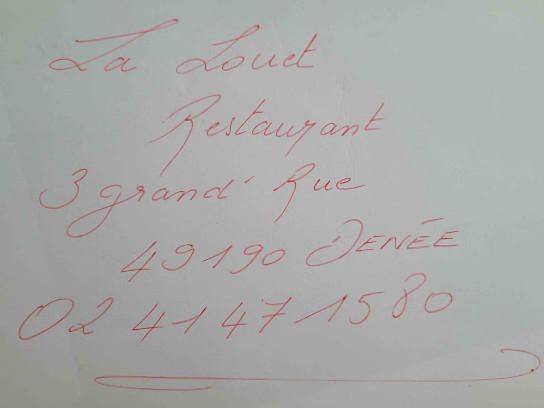 La Louet
Restaurant
3 grand' Rue
49190 DENÉE
02 41 47 15 80